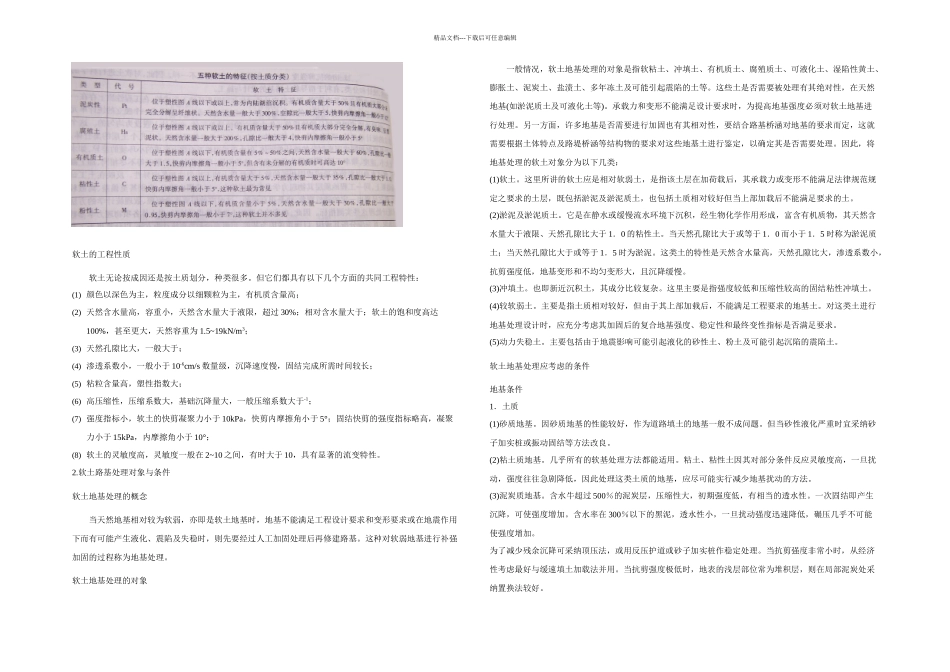 精品文档---下载后可任意编辑
五种软土的特征(按土质分类)
类 型 代 号 软 土 特 征
泥炭性 Pt 位于塑性图 A 线以下或以上,常为内陆湖沼沉积。有机质含量大于50%且有机质大部分
完全分解呈纤维状。天然含水量一般大于300%,孔隙比一般大于
腐殖土 Hs 位于塑性图 A 线以下或以上,有机质含量大于50%且有机质大部分完全分解,有臭味,呈
泥状。天然含水量一般大于200%,孔隙比一般大于4,快剪内摩擦角一般小于5°
有机质土 O 位于塑性图 A 线以下,有机质含量在5%~50%之间,天然含水量一般大于60%,孔隙比一般
大于1.5,快剪内摩擦角一般小于5°,但含有未分解的有机质时可高达10°
粘性土 C 位于塑性图 A 线以上,有机质含量小于5%,天然含水量一般大于35%,孔隙比一般大于
快剪内摩擦角一般小于5°,这种软土最为常见
粉性土 M 位于塑性图 A 线以下,有机质含量小于5%,天然含水量一般大于30%,孔隙比一般大于
0.95,快剪内摩擦角一般小于7°,这种软土并不常见
软土的工程性质
软土无论按成因还是按土质划分,种类很多。但它们都具有以下几个方面的共同工程特性:
(1) 颜色以深色为主,粒度成分以细颗粒为主,有机质含量高;
(2) 天然含水量高,容重小,天然含水量大于液限,超过 30%;相对含水量大于;软土的饱和度高达
100%,甚至更大,天然容重为 1.5~19kN/m³;
(3) 天然孔隙比大,一般大于;
(4) 渗透系数小,一般小于 10⁻⁶cm/s 数量级,沉降速度慢,固结完成所需时间较长;
(5) 粘粒含量高,塑性指数大;
(6) 高压缩性,压缩系数大,基础沉降量大,一般压缩系数大于⁻¹;
(7) 强度指标小,软土的快剪凝聚力小于 10kPa,快剪内摩擦角小于 5°;固结快剪的强度指标略高,凝聚
力小于 15kPa,内摩擦角小于 10°;
(8) 软土的灵敏度高,灵敏度一般在 2~10 之间,有时大于 10,具有显著的流变特性。
2.软土路基处理对象与条件
软土地基处理的概念
当天然地基相对较为软弱,亦即是软土地基时,地基不能满足工程设计要求和变形要求或在地震作用
下而有可能产生液化、震陷及失稳时,则先要经过人工加固处理后再修建路基。这种对软弱地基进行补强
加固的过程称为地基处理。
软土地基处理的对象
一般情况,软土地基处理的对象是指软粘土、冲填土、有机质土、腐殖质土、可液化土。湿陷性黄土、
膨胀土、泥炭土、盐渍土、多年冻土及可能引起震陷的土等。这些土是否需要被处理有其绝对性,在天然
地基(如淤泥质土及可液化土等)。承载力和变形不能满足设计要求时,为提高地基强度必须对软土地基进
行处理。另一方面,许多地基是否需要进行加固也有其相对性,要结合路基桥涵对地基的要求而定,这就
需要根据土体特点及路堤桥涵等结构物的要求对这些地基土进行鉴定,以确定其是否需要处理。因此,将
地基处理的软土对象分为以下几类:
(1)软土。这里所讲的软土应是相对软弱土,是指该土层在加荷载后,其承载力或变形不能满足法律规范规
定之要求的土层,既包括淤泥及淤泥质土,也包括土质相对较好但当上部加载后不能满足要求的土。
(2)淤泥及淤泥质土。它是在静水或缓慢流水环境下沉积,经生物化学作用形成,富含有机质物,其天然含
水量大于液限、天然孔隙比大于 1.0 的粘性土。当天然孔隙比大于或等于 1.0 而小于 1.5 时称为淤泥质
土;当天然孔隙比大于或等于 1.5 时为淤泥。这类土的特性是天然含水量高,天然孔隙比大,渗透系数小,
抗剪强度低,地基变形和不均匀变形大,且沉降缓慢。
(3)冲填土。也即新近沉积土,其成分比较复杂。这里主要是指强度较低和压缩性较高的固结粘性冲填土。
(4)较软弱土。主要是指土质相对较好,但由于其上部加载后,不能满足工程要求的地基土。对这类土进行
地基处理设计时,应充分考虑其加固后的复合地基强度、稳定性和最终变性指标是否满足要求。
(5)动力失稳土。主要包括由于地震影响可能引起液化的砂性土、粉土及可能引起沉陷的震陷土。
软土地基处理应考虑的条件
地基条件
1.土质
(1)砂质地基。因砂质地基的性能较好,作为道路填土的地基一般不成问题。但当砂性液化严重时宜采纳砂
子加实桩或振动固结等方法改良。
(2)粘土质地基。几乎所有的软基处理方法都能适用。粘土、粘性土因其对部分条件反应灵敏度高,一旦扰
动,强度往往急剧降低,因此处理这类土质的地基,应尽可能实行减少地基扰动的方法。
(3)泥炭质地基。含水牛超过 500%的泥炭层,压缩性大,初期强度低,有相当的透水性。一次固结即产生
沉降,可使强度增加。含水率在 300%以下的黑泥,透水性小,一旦扰动强度迅速降低,碾压几乎不可能
使强度增加。
为了减少残余沉降可采纳顶压法,或用反压护道或砂子加实桩作稳定处理。当抗剪强度非常小时,从经济
性考虑最好与缓速填土加载法并用。当抗剪强度极低时,地表的浅层部位常为堆积层,则在局部泥炭处采
纳置换法较好。